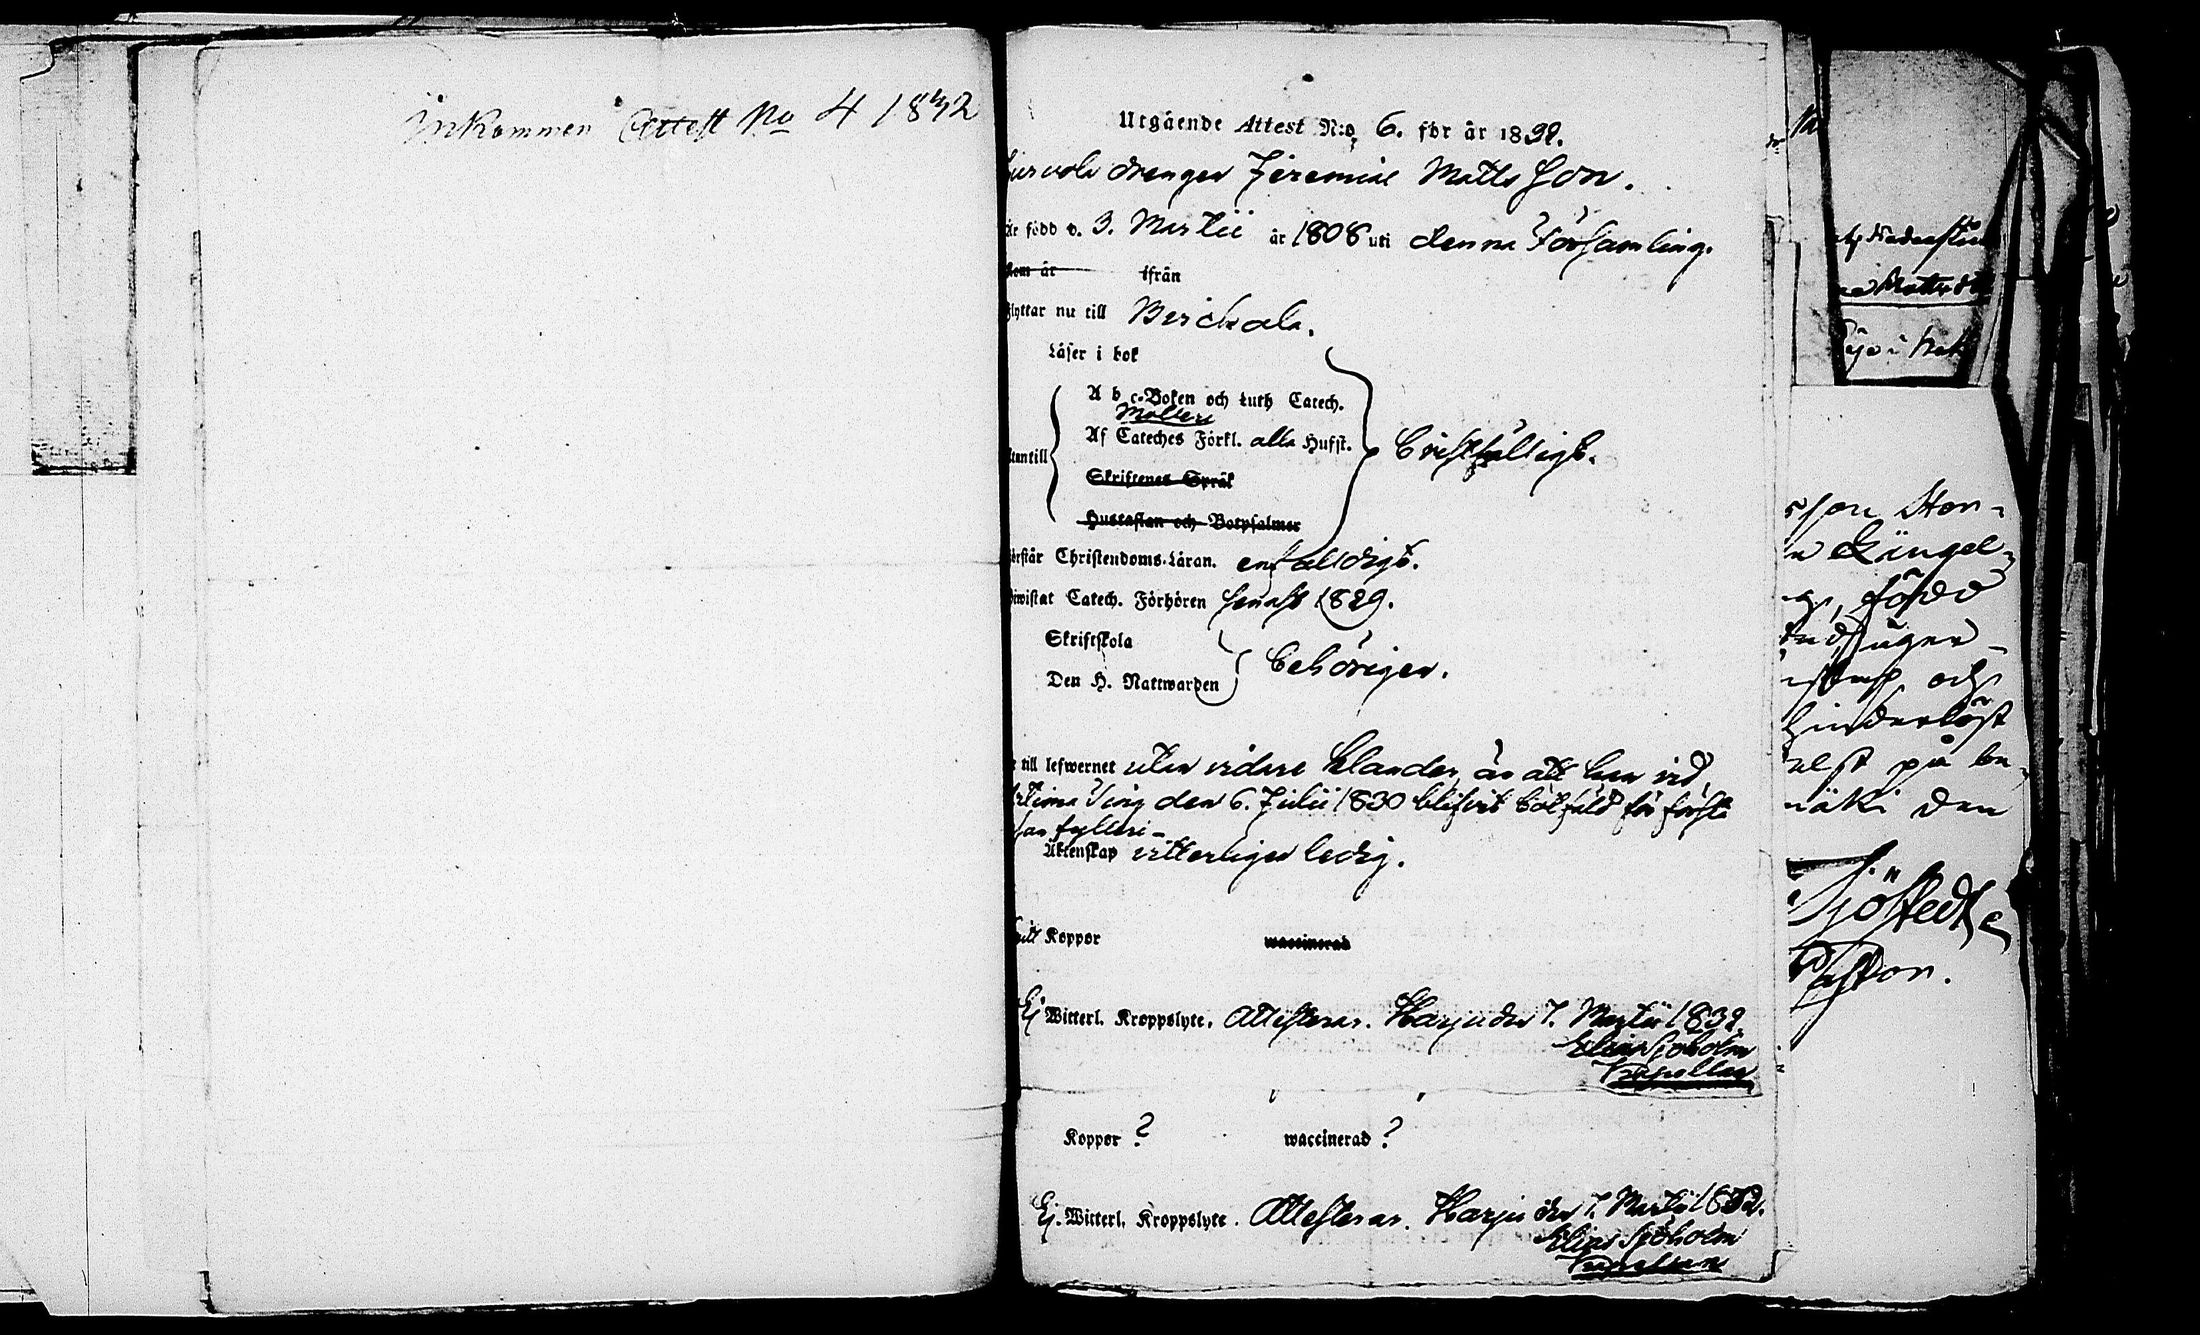 Inkommen Attest No 4 1832
Utgående Attest N:o 6. för år 1832.
drengen Jeremias Matts Son.
är född d. 3. Martii år 1808 uti denna Församling.
ifrån
flyttar nu till Birckala.
Läser i bok
A b c-Boken och Luth Catech.
Af Cateches Förkl. alla Hufst.
Utantill
Bristfälligt.
Skriftenes Språk
Hustaflan och Botpsalmer
förstår Christendoms-Läran. enfaldigt.
bewistat Catech. Förhören senast 1829.
Skriftskola
Den H. Nattwarden
behörigen.
till lefwernet utan vidare klander, än att han vid
Ting den 6. Julii 1830 blifvit bötfäld för första
fylleri-
Äktenskap vitterligen ledig.
Koppor waccinerad
Ej Witterl. Kroppslyte. Attesterar. Harju den 7. Martii 1832.
Elias Sjöholm
Capellan
Koppor? waccinerad?
Ej. Witterl. Kroppslyte. Attesterar. Harju den 7. Martii 1832.
Elias Sjöholm
Capellan
född
och
hinderlöst
på
den
Sjöstedt
Pastor.